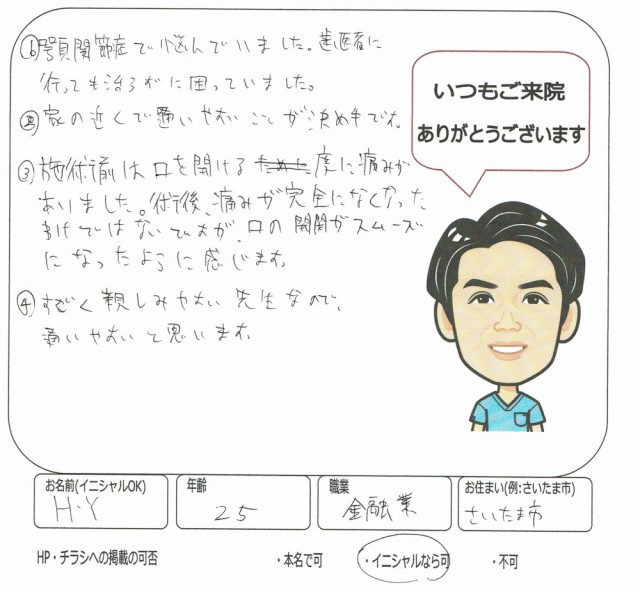 ①顎関節症で悩んでいました。歯医者に
行っても治らずに困っていました。
②家の近くで通いやすいことが決め手です。
③施術前は口を開ける度に痛みが
ありました。術後、痛みが完全になくなった
わけではないですが、口の開閉がスムーズ
になったように感じます。
④すごく親しみやすい先生なので、
通いやすいと思います。
いつもご来院
ありがとうございます
お名前(イニシャルOK)
H.Y
年齢
25
職業
金融業
お住まい(例:さいたま市)
さいたま市
HP・チラシへの掲載の可否 ・本名で可 ・イニシャルなら可 ・不可